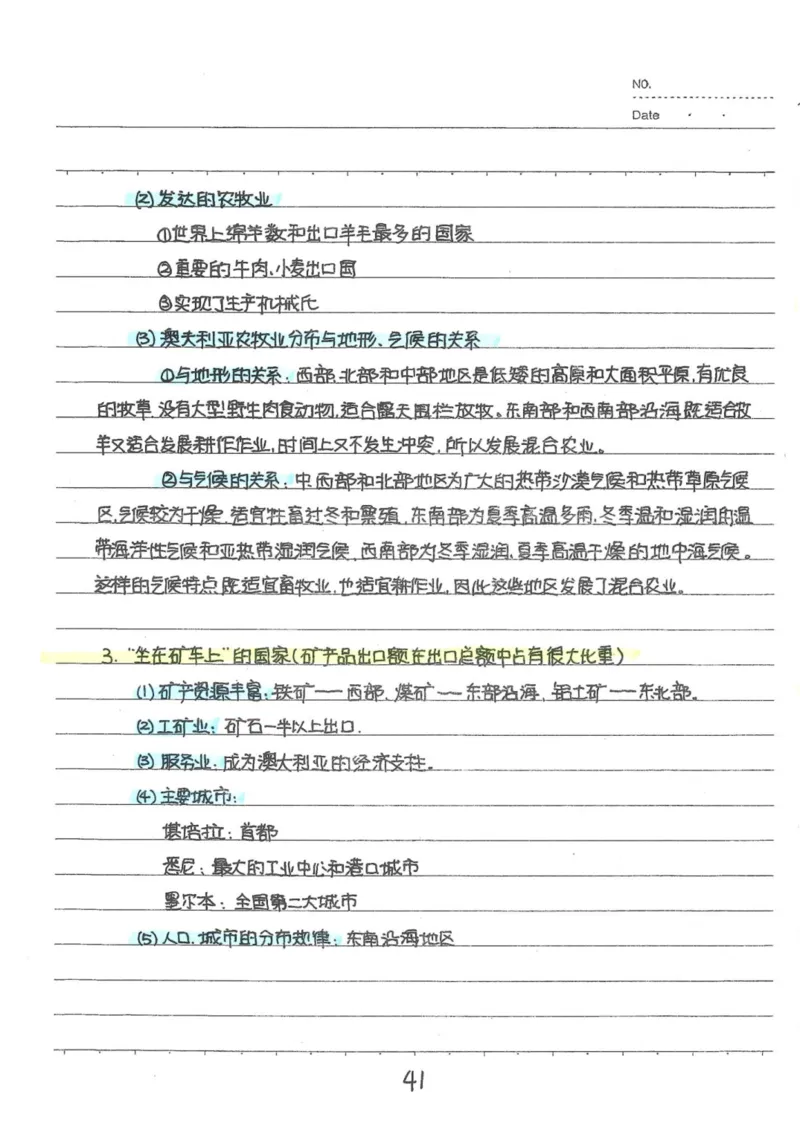 NO.
Date
(2)发达的农牧业
①世界上绵羊数和出口羊毛最多的国家
②重要的牛肉、小麦出口国
③实现了生产机械化
(3)澳大利亚农牧业分布与地形、气候的关系
①与地形的关系:西部、北部和中部地区是低矮的高原和大面积平原,有优良
的牧草,没有大型野生肉食动物,适合露天围栏放牧。东南部和西南部沿海既适合牧
羊又适合发展耕作作业,时间上又不发生冲突,所以发展混合农业。
②与气候的关系:中西部和北部地区为广大的热带沙漠气候和热带草原气候
区,气候较为干燥,适宜牲畜过冬和繁殖,东南部为夏季高温多雨,冬季温和湿润的温
带海洋性气候和亚热带湿润气候,西南部为冬季湿润,夏季高温干燥的地中海气候。
这样的气候特点既适宜畜牧业,也适宜耕作业,因此这些地区发展了混合农业。
3. “坐在矿车上”的国家(矿产品出口额在出口总额中占有很大比重)
(1)矿产资源丰富:铁矿——西部、煤矿——东部沿海、铝土矿——东北部。
(2)工矿业:矿石一半以上出口.
(3)服务业:成为澳大利亚的经济支柱。
(4)主要城市:
堪培拉:首都
悉尼:最大的工业中心和港口城市
墨尔本:全国第二大城市
(5)人口、城市的分布规律:东南沿海地区
41